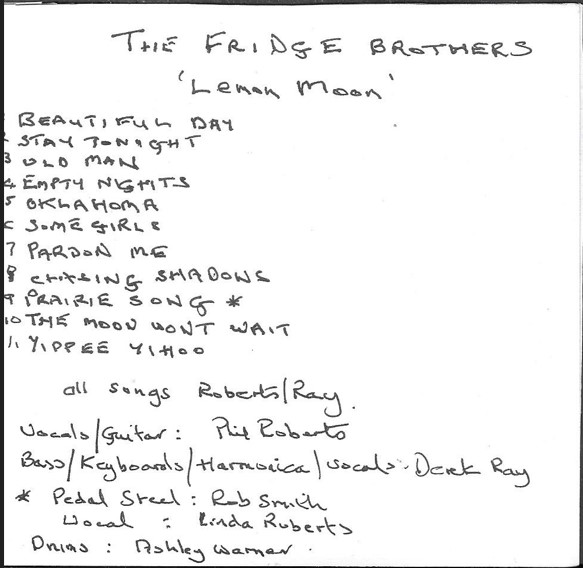 THE FRIDGE BROTHERS
'Lemon Moon'
1 BEAUTIFUL DAY
2 STAY TONIGHT
3 OLD MAN
4 EMPTY NIGHTS
5 OKLAHOMA
6 SOME GIRLS
7 PARDON ME
8 CHASING SHADOWS
9 PRAIRIE SONG *
10 THE MOON WONT WAIT
11 YIPPEE YIHOO
all songs Roberts/Ray.
Vocals/Guitar: Phil Roberts
Bass/Keyboards/Harmonica/vocals: Derek Ray
* Pedal Steel: Rob Smith
Vocal : Linda Roberts
Drums : Ashley Warner.